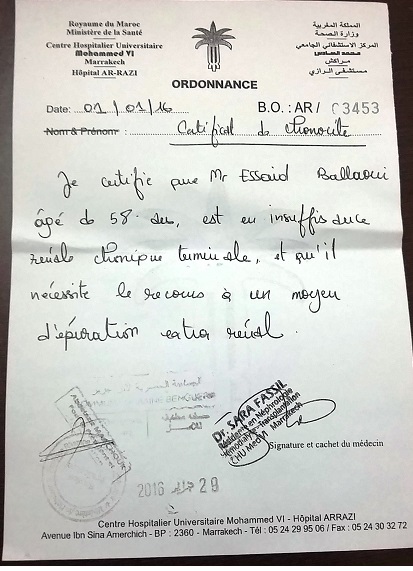 Royaume du Maroc
Ministère de la Santé
Centre Hospitalier Universitaire
Mohammed VI
Marrakech
Hôpital AR-RAZI
المملكة المغربية
وزارة الصحة
المركز الاستشفائي الجامعي
محمد السادس
مراكش
مستشفى الرازي
ORDONNANCE
Date: 01/01/16 B.O. : AR / 03453
Nom & Prénom : Certificat de chronicité
Je certifie que Mr Essaid Ballaoui
âgé de 58 ans, est en insuffisance
rénale chronique terminale, et qu'il
nécessite le recours à un moyen
d'épuration extra rénal.
Dr. SARA FASSIL
Résidente en Néphrologie
Hémodialyse-Transplantation
CHU Med VI Marrakech
Signature et cachet du médecin
2016 29
Centre Hospitalier Universitaire Mohammed VI - Hôpital ARRAZI
Avenue Ibn Sina Amerchich - BP : 2360 - Marrakech - Tél : 05 24 29 95 06 / Fax : 05 24 30 32 72